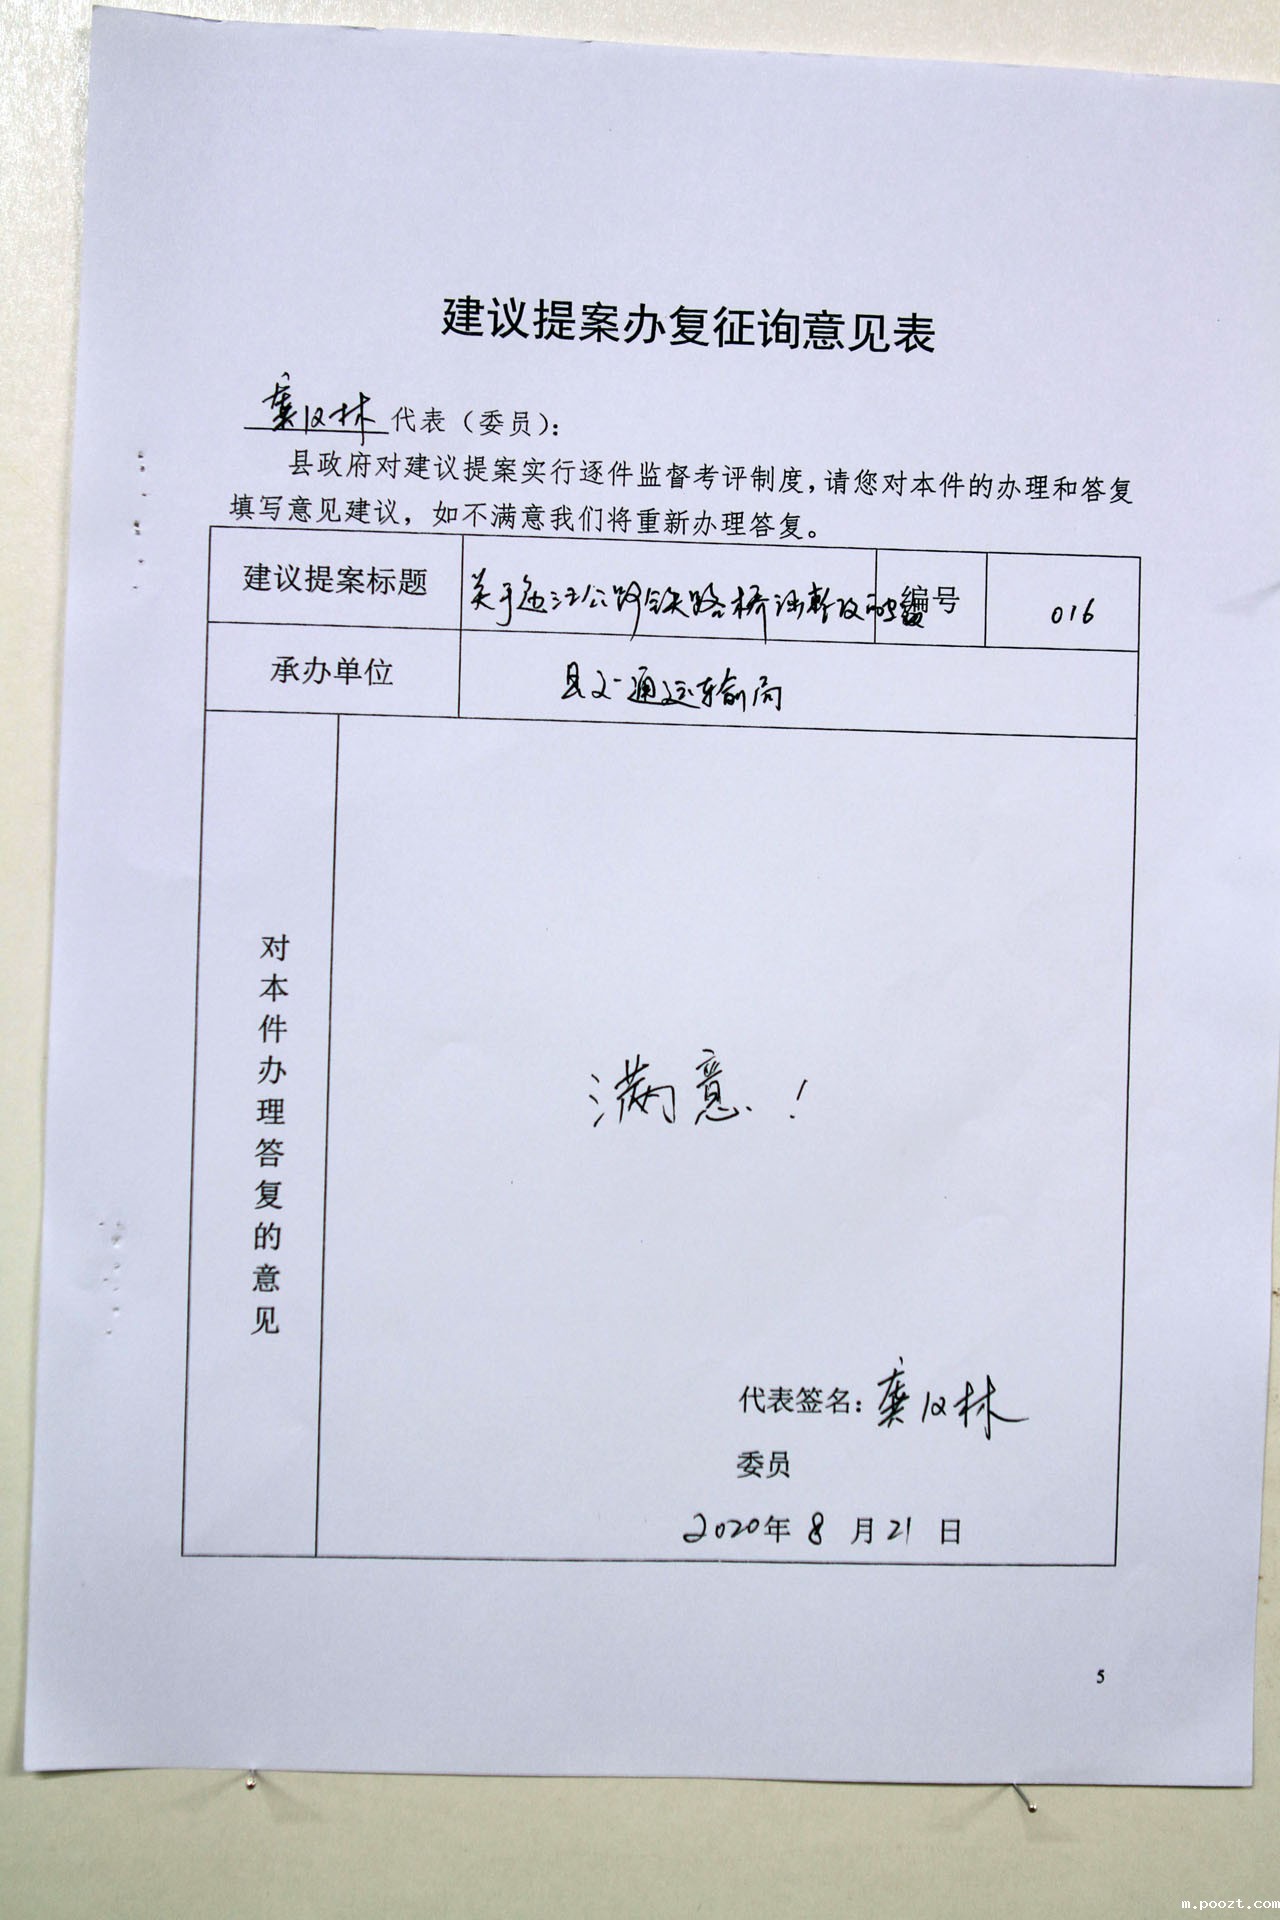 建议提案办复征询意见表
龚仪林代表(委员):
县政府对建议提案实行逐件监督考评制度,请您对本件的办理和答复
填写意见建议,如不满意我们将重新办理答复。
建议提案标题 关于 公路铁路桥涵 编号 016
承办单位 县交通运输局
对本件办理答复的意见
满意!
代表签名:龚仪林
委员
2020年8月21日
5
m.poozt.com